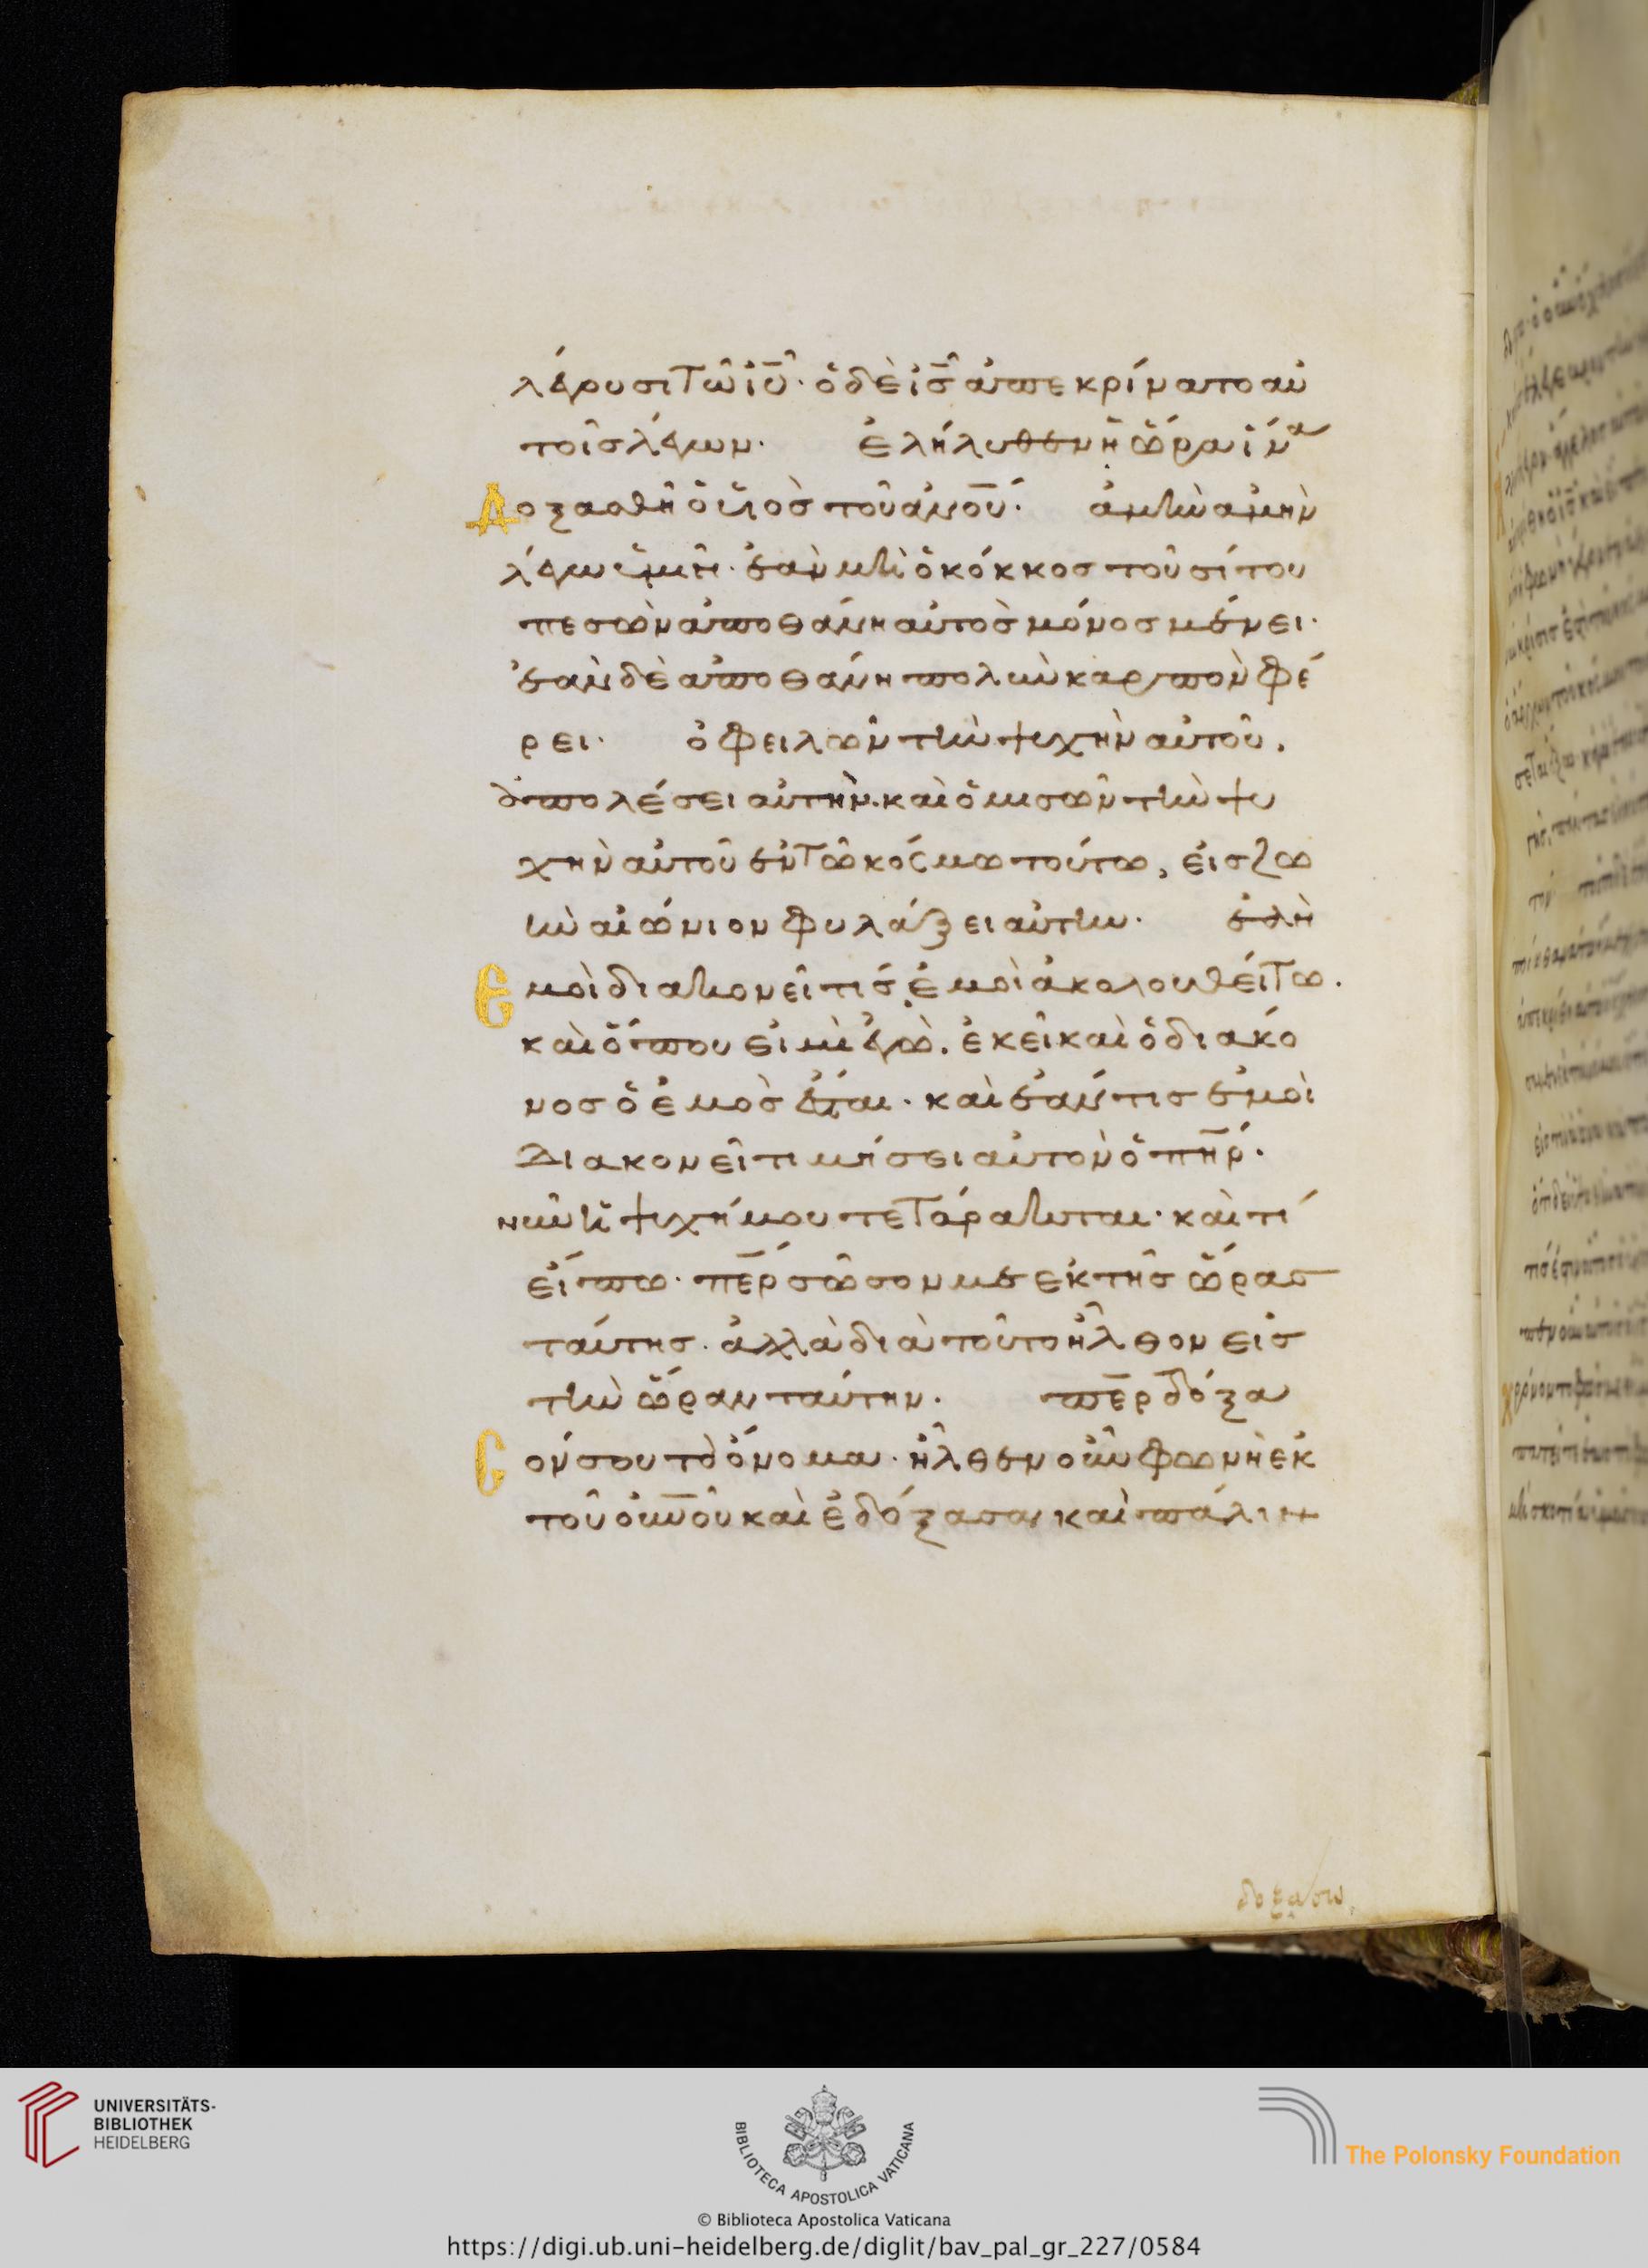 λέγουσι τῶ ἰῦ· ὁ δὲ ἰς ἀπεκρίνατο αὐ
τοῖς λέγων· ἐλήλυθεν ἡ ὥρα ἵνα
Δοξασθῆ ὁ υἱὸς τοῦ ἀνου· ἀμὴν ἀμὴν
λέγω ὑμῖν· ἐὰν μὴ ὁ κόκκος τοῦ σίτου
πεσὼν ἀποθάνη αὐτὸς μόνος μένει·
ἐὰν δὲ ἀποθάνη πολὺν καρπὸν φέ
ρει· ὁ φειλῶν τὴν ψυχὴν αὐτοῦ,
ἀπολέσει αὐτὴν· καὶ ὁ μισῶν τὴν ψυ
χὴν αὐτοῦ ἐν τῶ κόσμω τούτω, εἰς ζω
ὴν αἰώνιον φυλάξει αὐτήν· ἐὰν
Ἐμοὶ διακονεῖ τίς ἐμοὶ ἀκολουθείτω.
καὶ ὅπου εἰμὶ ἐγὼ. ἐκεῖ καὶ ὁ διακό
νος ὁ ἐμὸς ἔσται· καὶ ἐάν τις ἐμοὶ
Διακονεῖ τιμήσει αὐτὸν ὁ πηρ·
νῦν ἡ ψυχή μου τετάρακται· καὶ τί
εἴπω· περ σῶσον με ἐκ τῆς ὥρας
ταύτης· ἀλλὰ διὰ τοῦτο ἦλθον εἰς
τὴν ὥραν ταύτην· περ δόξα
Σον σου τὸ ὄνομα· ἦλθεν οὖν φωνὴ ἐκ
τοῦ οὐνοῦ καὶ ἐδόξασα καὶ πάλιν
δοξάσω
UNIVERSITÄTS-
BIBLIOTHEK
HEIDELBERG
BIBLIOTECA APOSTOLICA VATICANA
The Polonsky Foundation
© Biblioteca Apostolica Vaticana
https://digi.ub.uni-heidelberg.de/diglit/bav_pal_gr_227/0584